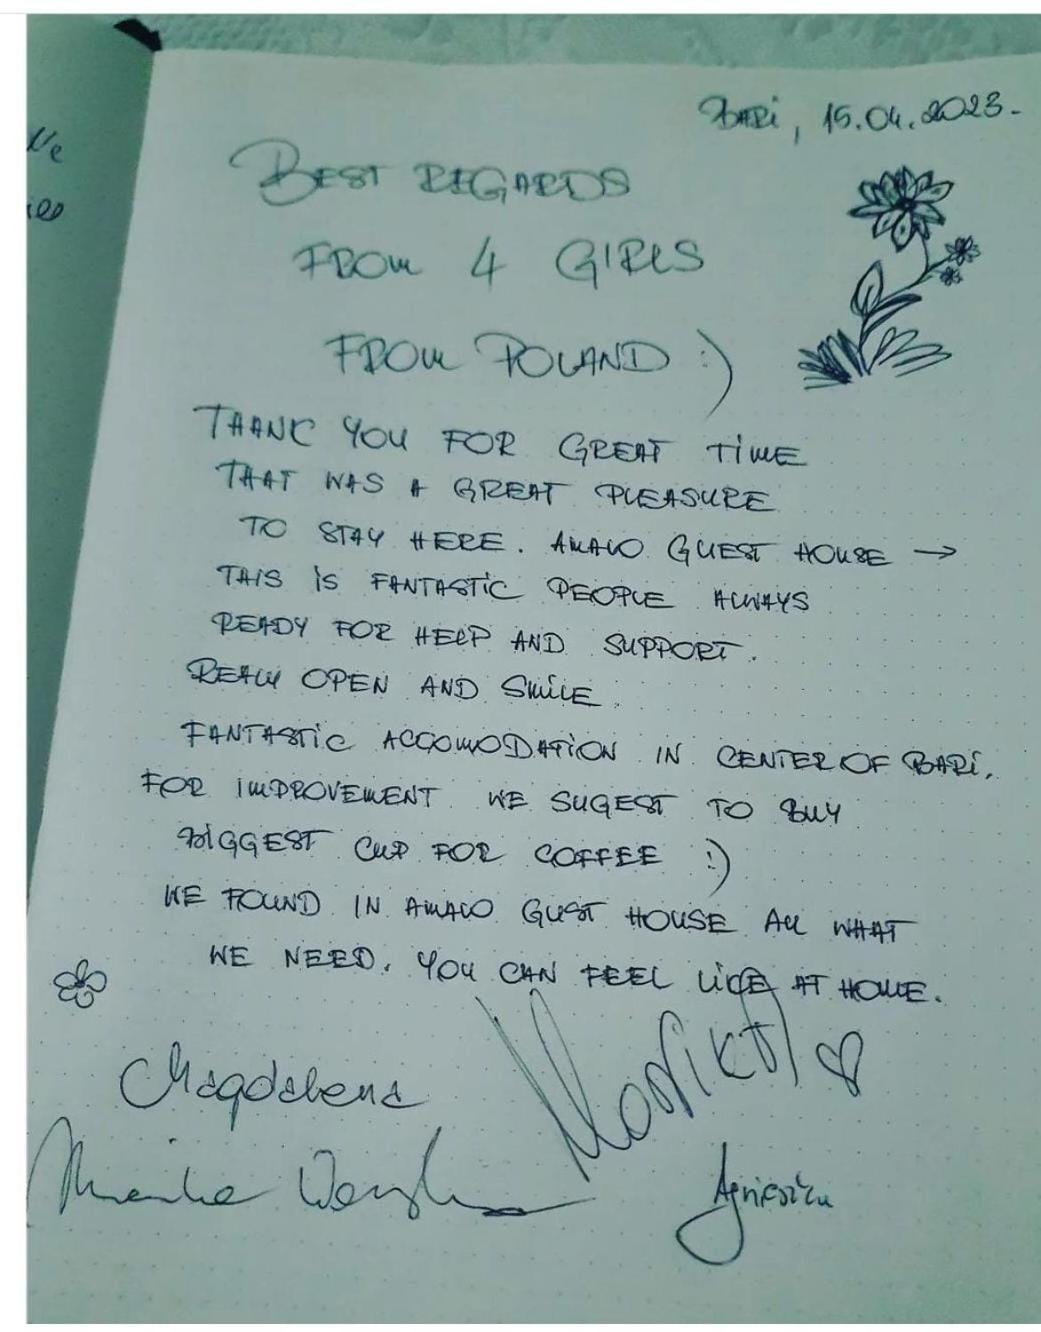 Bari, 15.04.2023.
BEST REGARDS
FROM 4 GIRLS
FROM POLAND :)
THANK YOU FOR GREAT TIME
THAT WAS A GREAT PLEASURE
TO STAY HERE. AMALO GUEST HOUSE →
THIS IS FANTASTIC PEOPLE ALWAYS
READY FOR HELP AND SUPPORT.
REALLY OPEN AND SMILE.
FANTASTIC ACCOMODATION IN CENTER OF BARI.
FOR IMPROVEMENT WE SUGEST TO BUY
BIGGEST CUP FOR COFFEE :)
WE FOUND IN AMALO GUST HOUSE ALL WHAT
WE NEED. YOU CAN FEEL LIKE AT HOME.
Magdalena
Agnieszka